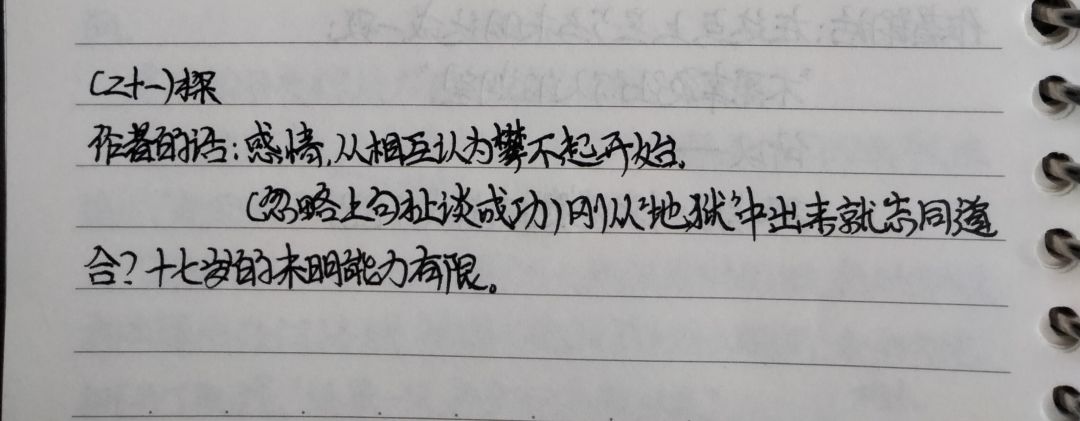 (二十一)探
作者的话：感情，从相互认为攀不起开始。
(忽略上句扯谈成功)刚从“地狱”中出来就志同道
合？十七岁的未明能力有限。